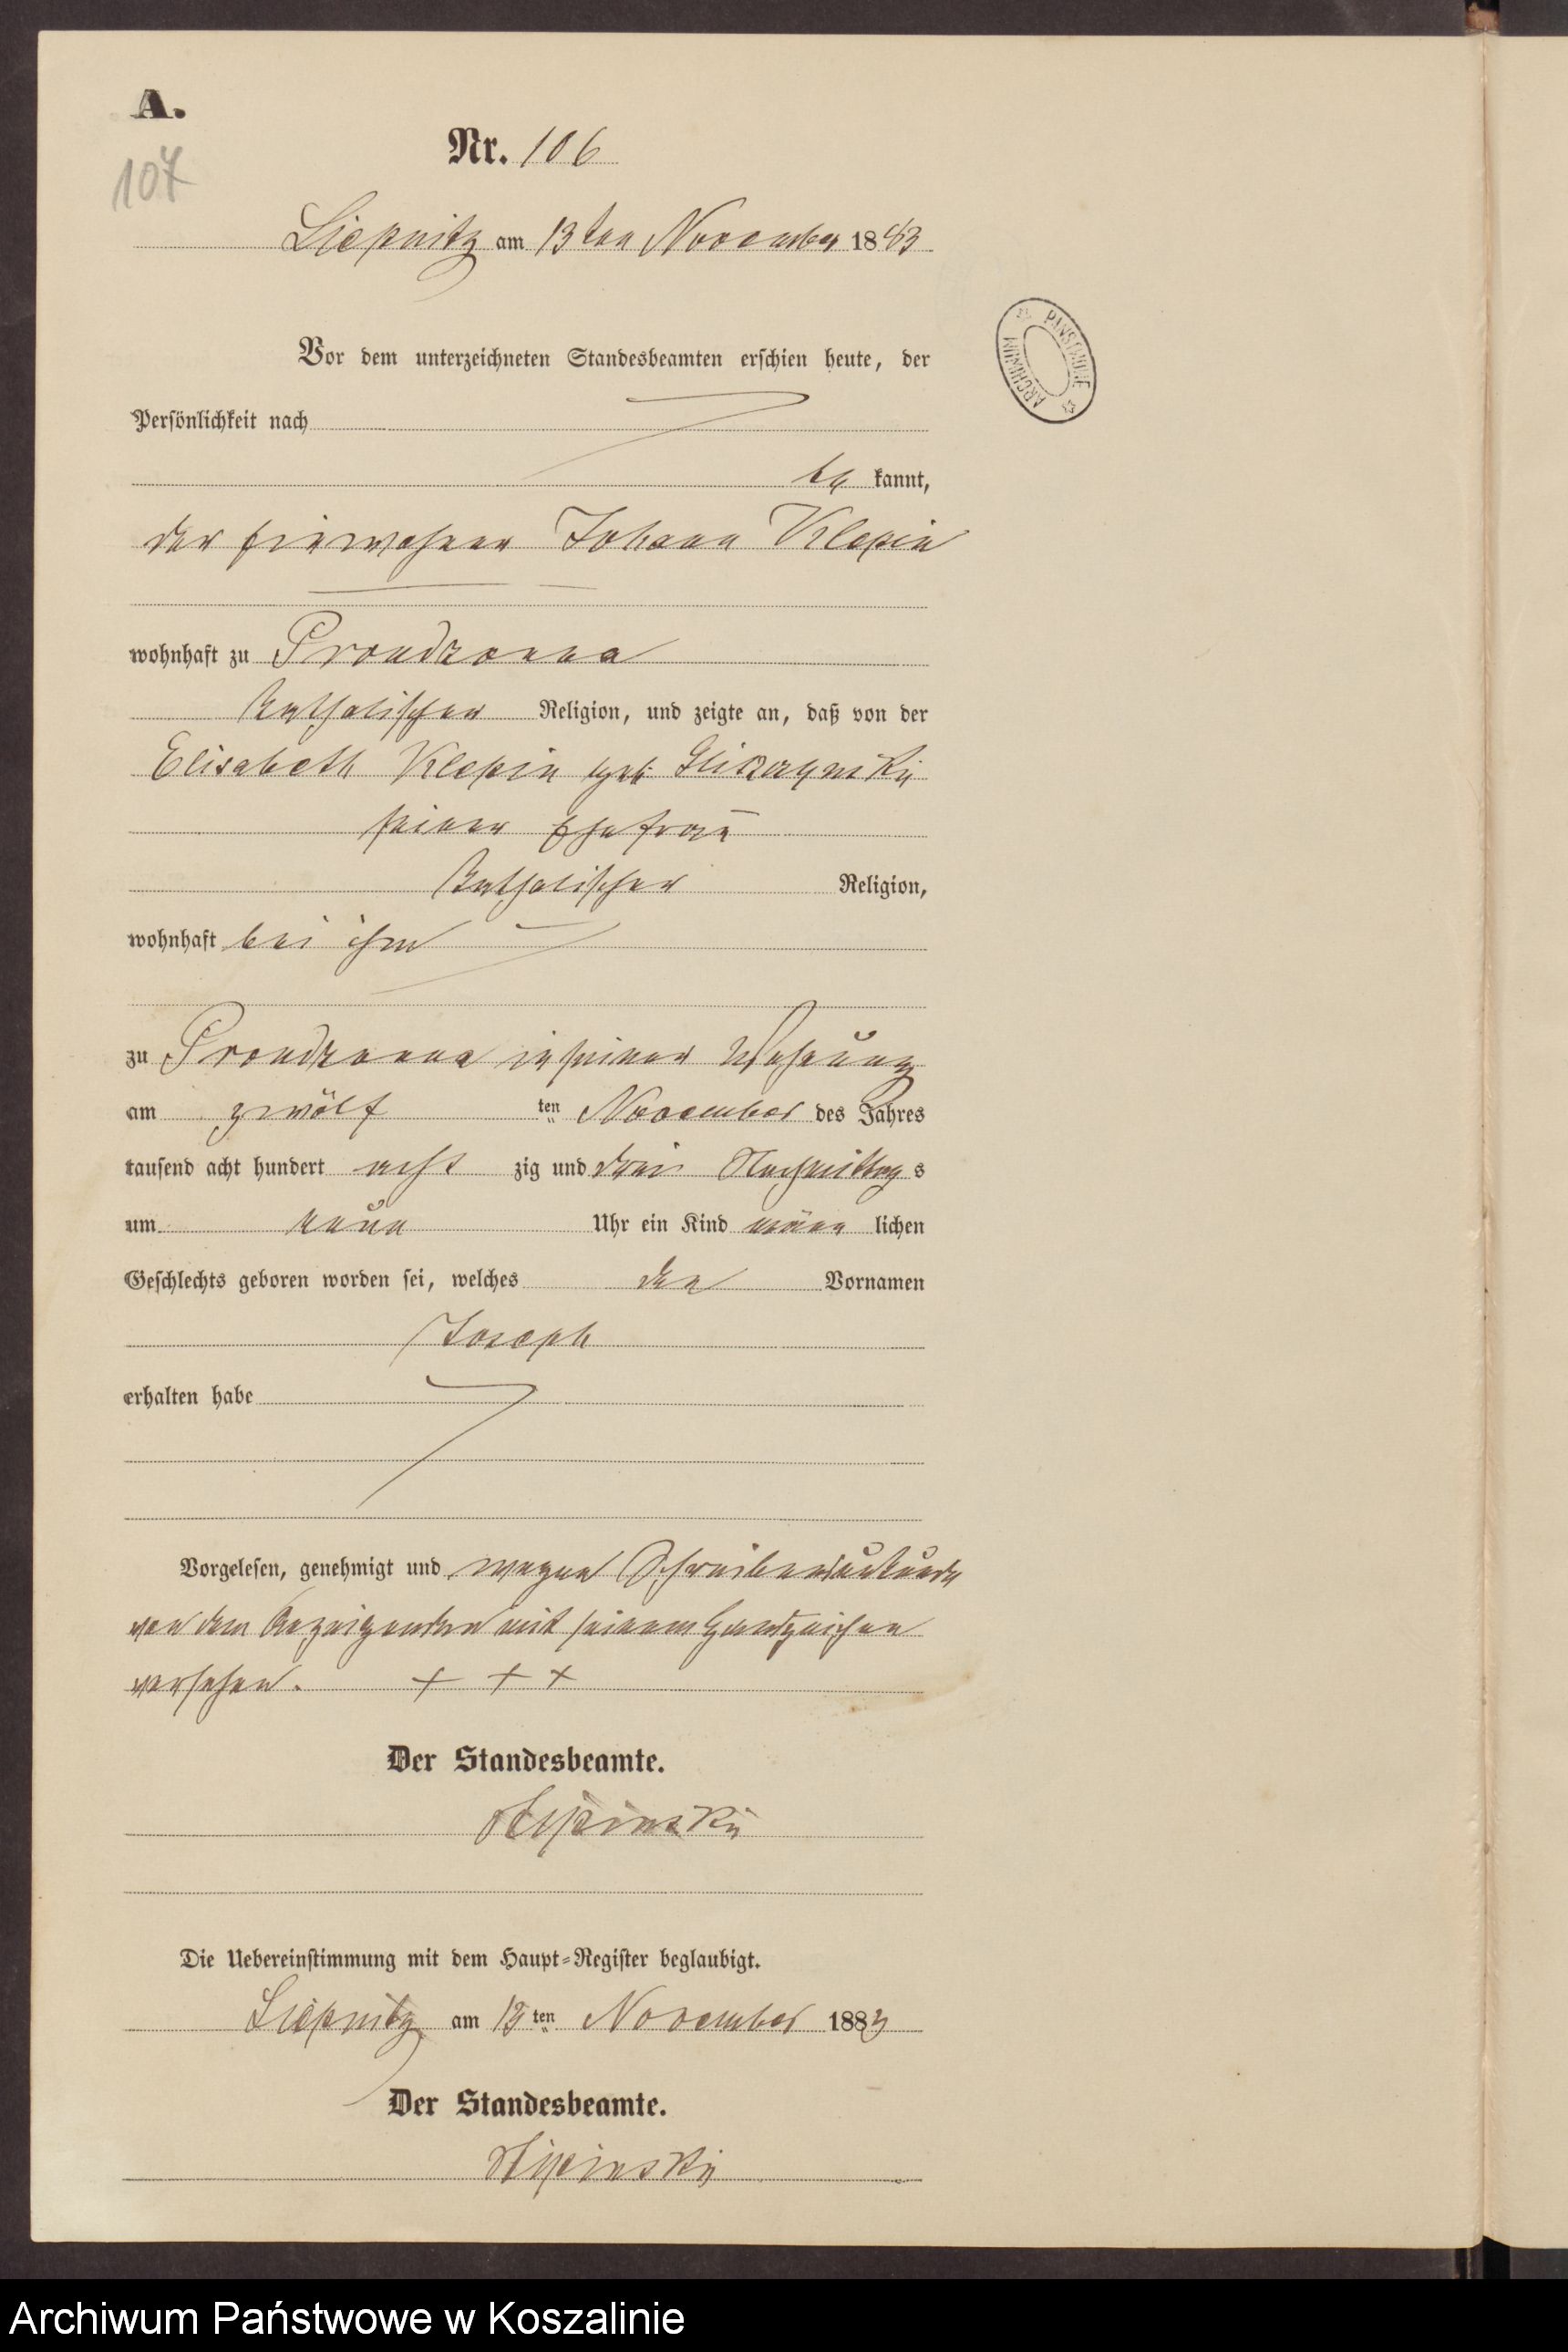 A.
107
Nr. 106
Liepnitz am 13ten November 1883
Vor dem unterzeichneten Standesbeamten erschien heute, der
Persönlichkeit nach
be kannt,
der Einwohner Johann Klepin
wohnhaft zu Prondzonna
katholischer Religion, und zeigte an, daß von der
Elisabeth Klepin geb
seiner Ehefrau
katholischer Religion,
wohnhaft bei ihm
zu Prondzonna in seiner Wohnung
am zwölf ten November des Jahres
tausend acht hundert acht zig und drei Nachmittag s
um neun Uhr ein Kind männ lichen
Geschlechts geboren worden sei, welches den Vornamen
Joseph
erhalten habe
Vorgelesen, genehmigt und wegen Schreibensunkunde
von dem Anzeigenden mit seinem Handzeichen
versehen. + + +
Der Standesbeamte.
Die Uebereinstimmung mit dem Haupt-Register beglaubigt.
Liepnitz am 13 ten November 1883
Der Standesbeamte.
ARCHIWUM PAŃSTWOWE
Archiwum Państwowe w Koszalinie